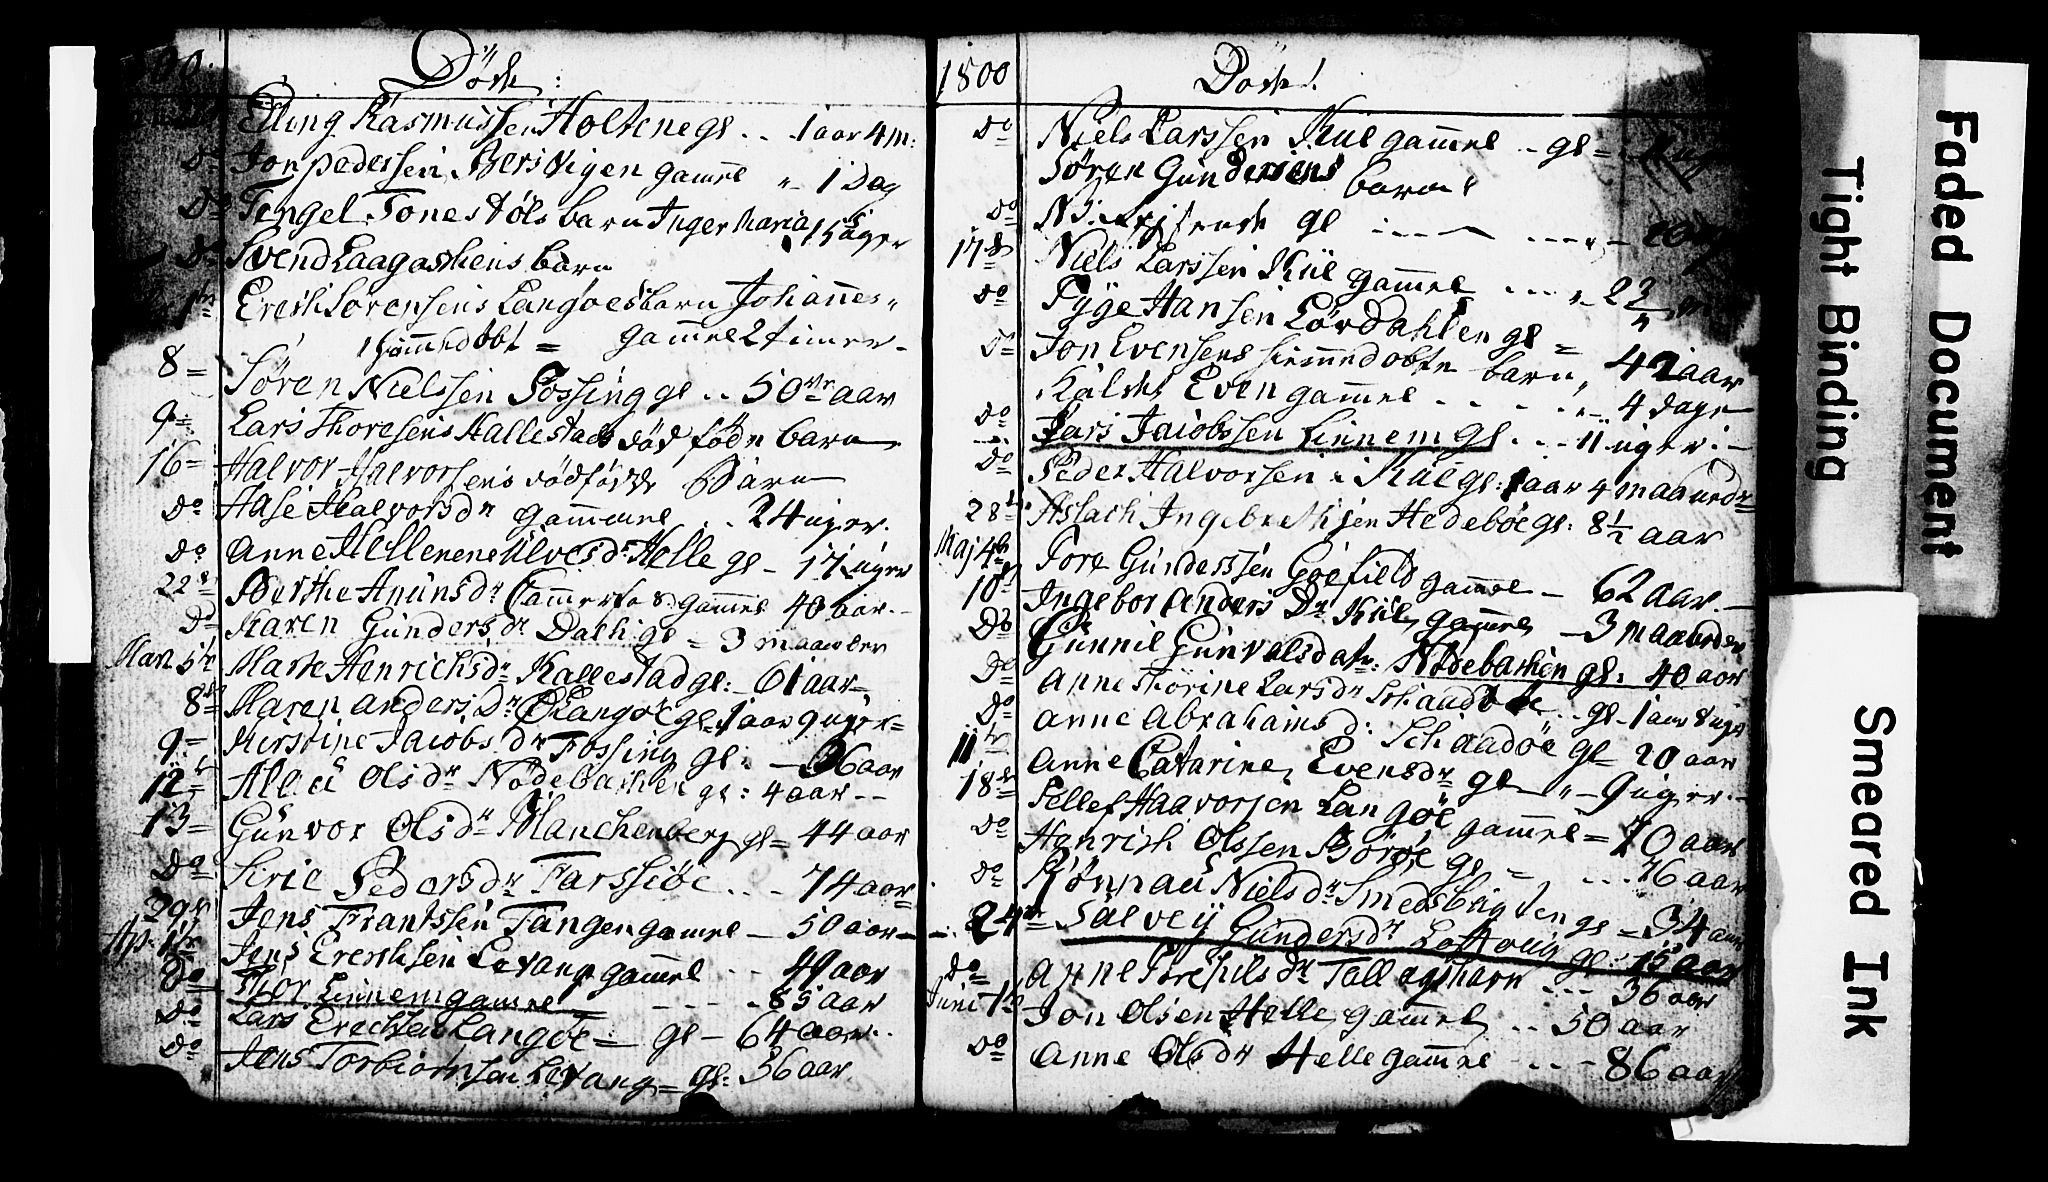 00. Döde:
Elling Rasmussen Holtene gl .. 1 aar 4 m:
Do Jon pedersen Bersvigen gamel " - 1 Dag
Do Tengel Tonestöls barn Inger Maria 15 uger
Do Svend Laagachens barn
1te Erech Sörensens Langöes barn Johannes "
hiemmedöbt = gammel 2 timer -
8 = Sören Nielssen Fossing gl .. 50 aar
9 = Lars Thoresens Kallestads död födn barn
16 = Halvor Halvorsens dödfödde Barn
Do Aase Halvorsdr gammel .. 24 uger.
Do Anne Hellene Ulvesdr Helle gl - 17 uger
22 Berthe Anunsdr gammel 40 aar. -
Do Karen Gundersdr Dalh gl = 3 maaneder
Mart 5te Marte Henrichsdr Kallestad gl: - 61 aar -
8 Maren andersdr Langöe gl = 1 aar 9 uger =
9 = Kerstine Jacobsdr Fossing gl: - 36 aar
12te Olsdr Nödebachen gl: 4 aar - -
13 = Gunvor Olsdr Blanchenberg gl = 44 aar
Do Sirie Pedersdr Farssiöe .. - 74 aar
29 Jens Frantssen Tangen gamel - 50 aar -
Ap: 1te Jens Erechsen Levang gammel - - 49 aar
Do Thor Linnem gamel - - - - 85 aar
Do Lars Erechsen Langöe = gl - 64 aar.
Do Jens Torbiörnsen Levang = gl: 36 aar
1800 Döde!
Do Niels Larssen Kiil gammel - gl =
Sören Gundersens barn
Do gl
17de Niels Larssen Kiil gammel
Do Tyge Hansen Lövdahlen gl = 42 aar
Do Jon Evensens hiemmedöbte barn,
Kaldet Even gammel - - - - 4 dage
Do Lars Jacobssen Linnem gl. - - 11 uger. -
Do Peder Halvorsen i Kiil gl: 1 aar 4 maaneder
28 Aslach Ingebrethsen Hedeböe gl: 8½ aar
Maj 4de Tore Gunderssen Goefield gammel - 62 aar. -
10 Ingebor Anders Dr Kiil gammel - 3 maaneder
Do Gunnil Gunvalsdatr: Nödebachen gl: 40 aar
Do Anne Thorine Larsdr gl - 1 aar 8 uger
Do anne Abrahams d: Schaadöe gl = 20 aar
11te Anne Catarine Evensdr gl " - 9 uger. -
18de Tellef Haavorsen Langöe gammel = 70 aar
Do Henrich Olssen Boröe gl = ... 76 aar
Do Rönnau Nielsdr Smedsbugten gl = 34 aar
24de = Salvey Gundersdr Loftvig gl: 15 aar
Do Anne Torchilsdr Tallagsharn - - - 36 aar
Juni 1te Jon Olsen Helle gammel .. 50 aar
Do Anne Olsdr Helle gammel - . - 86 aar
Tight Binding
Faded Document
Smeared Ink